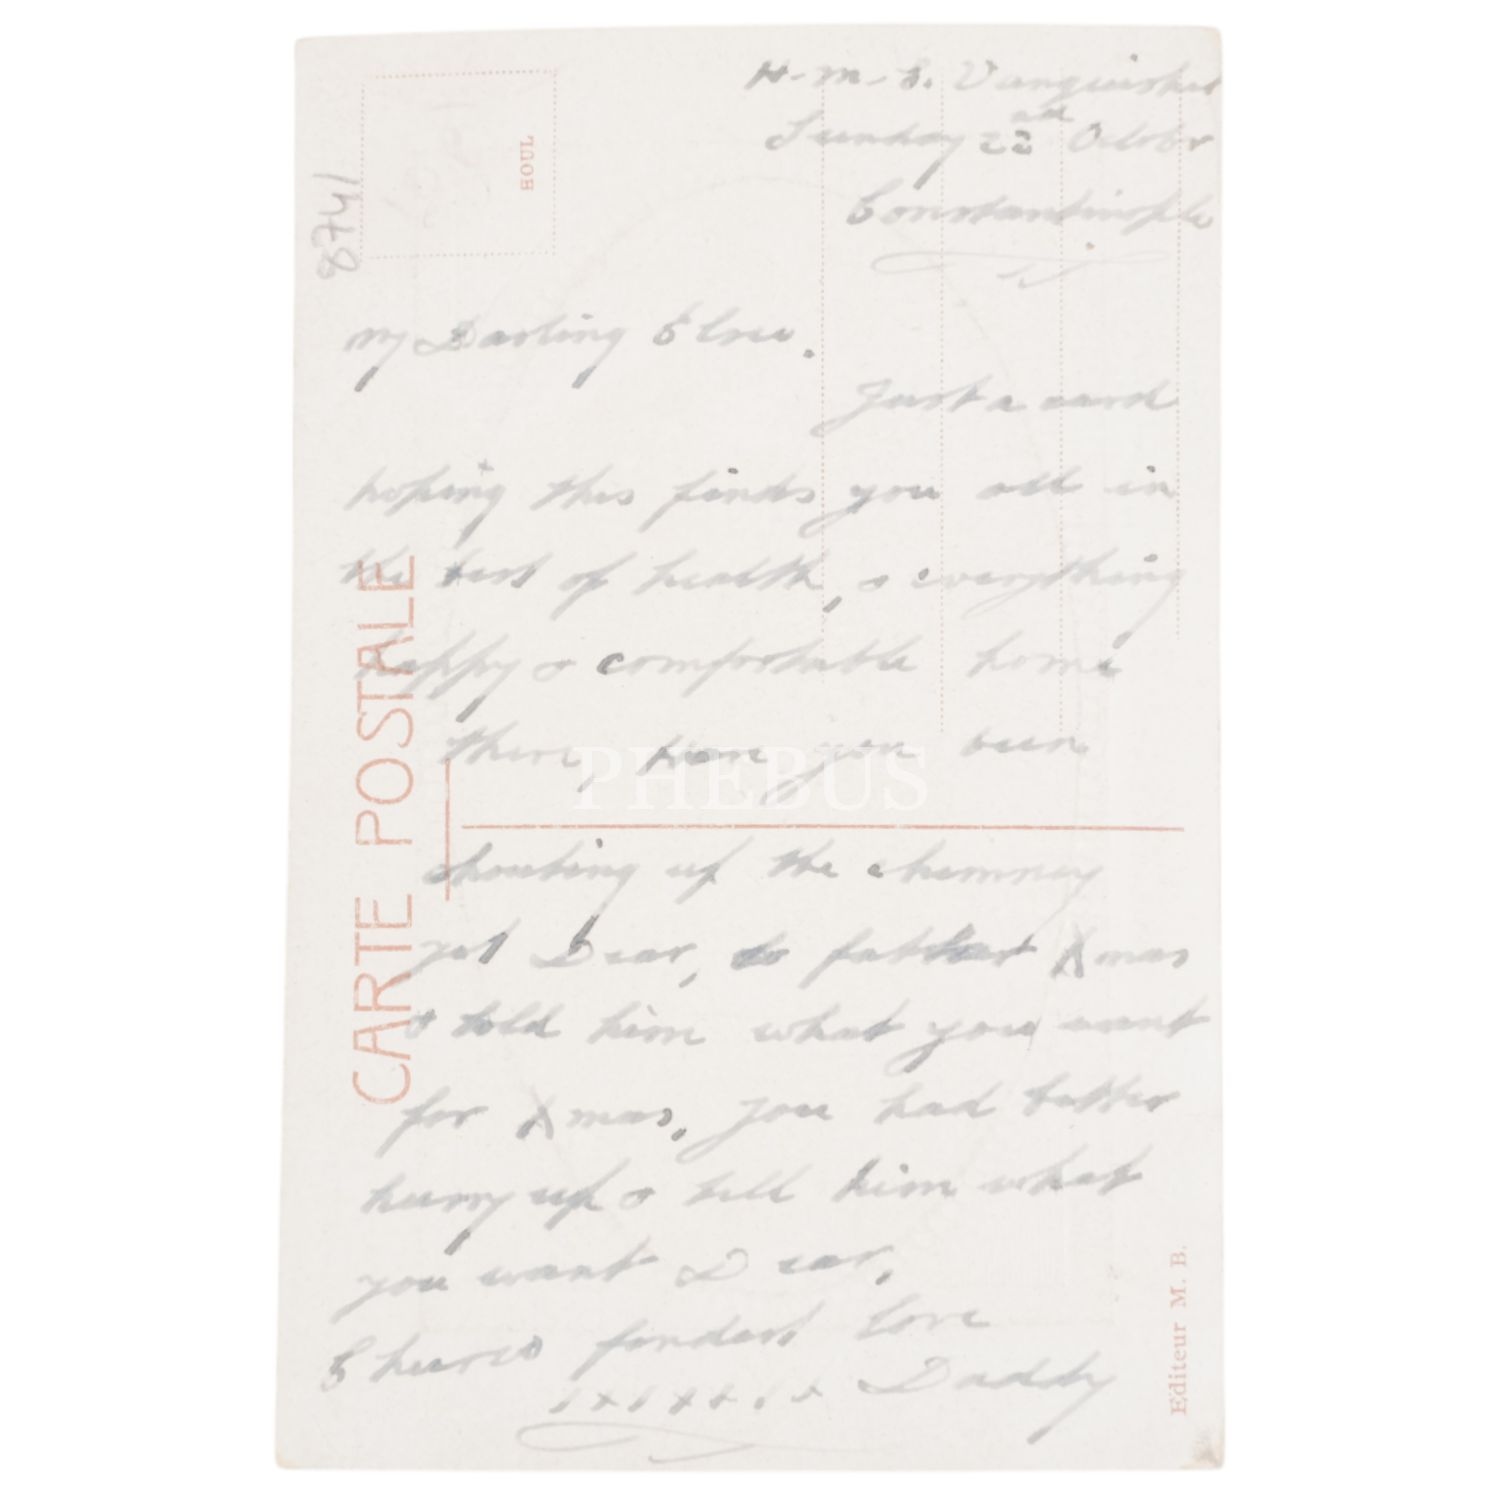 H.M.S. Vanquisher
Sunday 22nd October
Constantinople
HOUL
8741
My Darling Elsie.
Just a card
hoping this finds you all in
the best of health, & everything
happy & comfortable home
there, have you been
shouting up the chimney
yet Dear, to father Xmas
& told him what you want
for Xmas. you had better
hurry up & tell him what
you want Dear,
Cheerio fondest love
Daddy
CARTE POSTALE
Editeur M. B.
PHEBUS